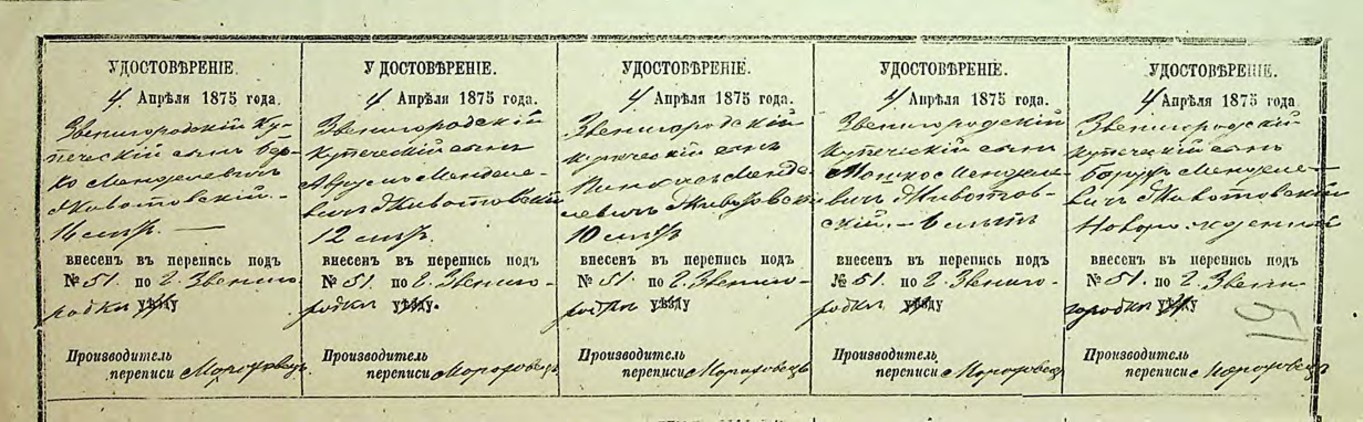 УДОСТОВѢРЕНІЕ.
4 Апрѣля 1875 года.
Звенигородскій Ку-
печескій сынъ Бер-
ко Менделевичъ
Животовскій. —
16 лѣтъ. —
внесенъ въ перепись подъ
№ 51. по г. Звениго
родкѣ уѣзду
Производитель
переписи
УДОСТОВѢРЕНІЕ.
4 Апрѣля 1875 года.
Звенигородскій
Купеческій сынъ
Аврумъ Менделе-
вичъ Животовскій
12 лѣтъ.
внесенъ въ перепись подъ
№ 51. по г. Звениго-
родкѣ уѣзду.
Производитель
переписи
УДОСТОВѢРЕНІЕ.
4 Апрѣля 1875 года.
Звенигородскій
Купеческій сынъ
Пинхасъ Менде
левичъ Животовскій
10 лѣтъ
внесенъ въ перепись подъ
№ 51. по г. Звениго-
родкѣ уѣзду
Производитель
переписи
УДОСТОВѢРЕНІЕ.
4 Апрѣля 1875 года.
Звенигородскій
Купеческій сынъ
Мошко Менделе-
вичъ Животов-
скій. — 6 лѣтъ
внесенъ въ перепись подъ
№ 51. по г. Звениго-
родкѣ уѣзду
Производитель
переписи
УДОСТОВѢРЕНІЕ.
4 Апрѣля 1875 года.
Звенигородскій
Купеческій сынъ
Менделе-
вичъ Животовскій
Новорожденный
внесенъ въ перепись подъ
№ 51. по г. Звени-
городкѣ уѣзду
Производитель
переписи
19